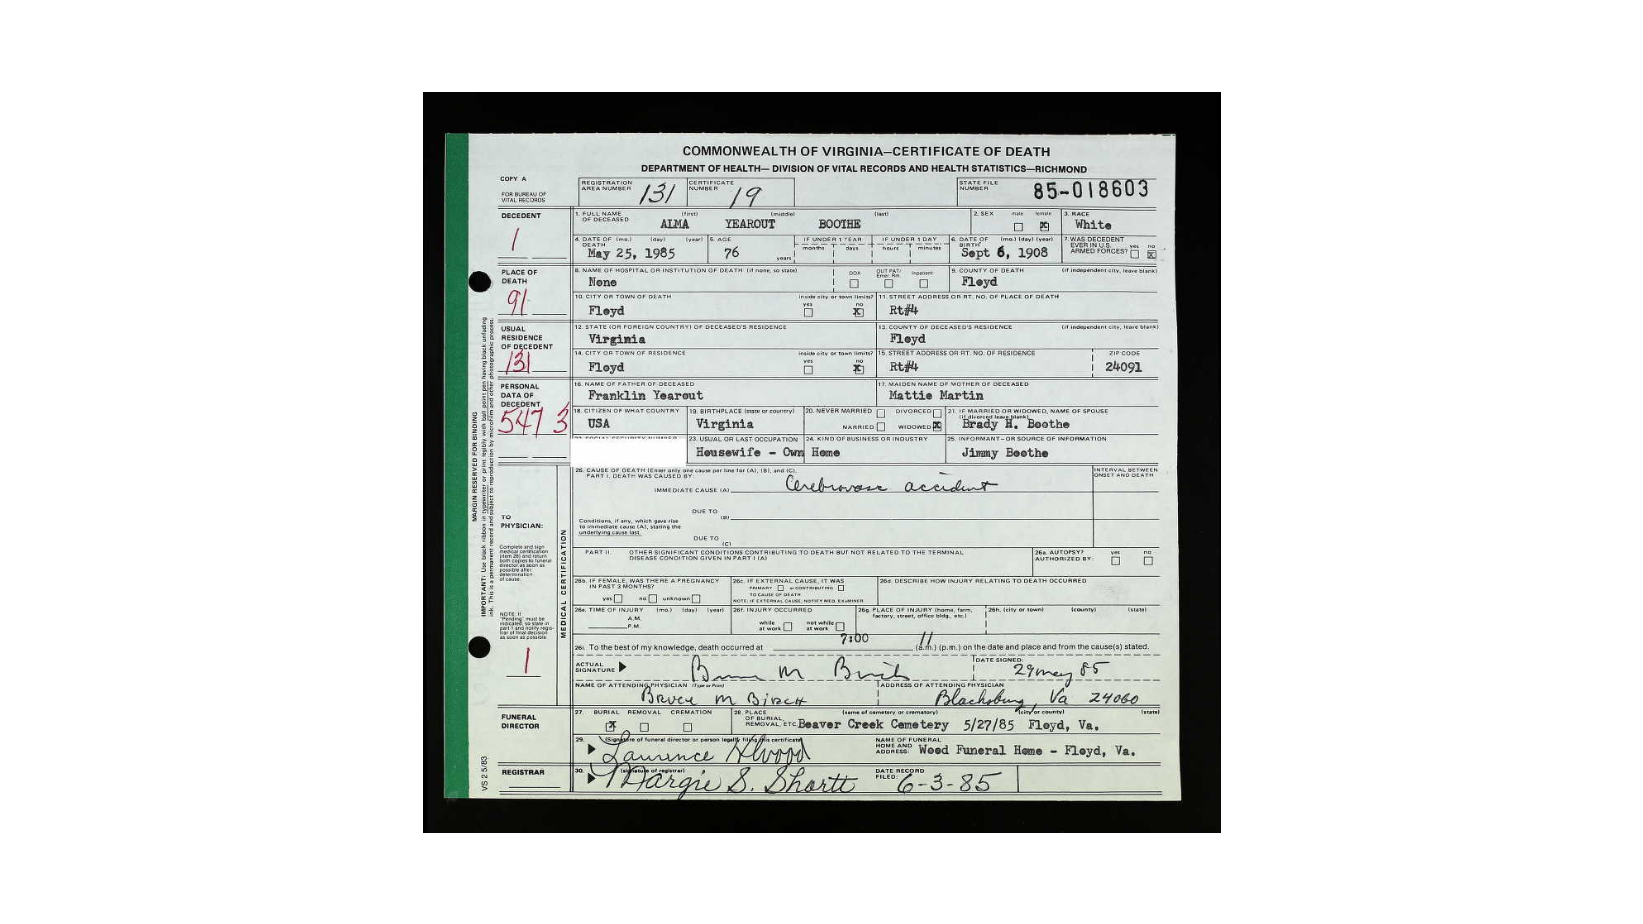 COMMONWEALTH OF VIRGINIA—CERTIFICATE OF DEATH
DEPARTMENT OF HEALTH— DIVISION OF VITAL RECORDS AND HEALTH STATISTICS—RICHMOND
COPY A
FOR BUREAU OF
VITAL RECORDS
REGISTRATION AREA NUMBER 131 CERTIFICATE NUMBER 19 STATE FILE NUMBER 85-018603
DECEDENT
1
1. FULL NAME OF DECEASED (first) (middle) (last) 2. SEX male female 3. RACE
ALMA YEAROUT BOOTHE X White
4. DATE OF DEATH (mo.) (day) (year) 5. AGE IF UNDER 1 YEAR IF UNDER 1 DAY 6. DATE OF BIRTH (mo.) (day) (year) 7. WAS DECEDENT EVER IN U.S. ARMED FORCES? yes no
May 25, 1985 76 years months days hours minutes Sept 6, 1908 X
PLACE OF
DEATH
91
8. NAME OF HOSPITAL OR INSTITUTION OF DEATH (if none, so state) DOA OUT PAT/ Emer. Rm. Inpatient 9. COUNTY OF DEATH (if independent city, leave blank)
None Floyd
10. CITY OR TOWN OF DEATH inside city or town limits? yes no 11. STREET ADDRESS OR RT. NO. OF PLACE OF DEATH
Floyd X Rt#4
USUAL
RESIDENCE
OF DECEDENT
131
12. STATE (OR FOREIGN COUNTRY) OF DECEASED'S RESIDENCE 13. COUNTY OF DECEASED'S RESIDENCE (if independent city, leave blank)
Virginia Floyd
14. CITY OR TOWN OF RESIDENCE inside city or town limits? yes no 15. STREET ADDRESS OR RT. NO. OF RESIDENCE ZIP CODE
Floyd X Rt#4 24091
PERSONAL
DATA OF
DECEDENT
547 3
16. NAME OF FATHER OF DECEASED 17. MAIDEN NAME OF MOTHER OF DECEASED
Franklin Yearout Mattie Martin
18. CITIZEN OF WHAT COUNTRY 19. BIRTHPLACE (state or country) 20. NEVER MARRIED DIVORCED 21. IF MARRIED OR WIDOWED, NAME OF SPOUSE (if divorced leave blank)
USA Virginia MARRIED WIDOWED X Brady H. Boothe
23. USUAL OR LAST OCCUPATION 24. KIND OF BUSINESS OR INDUSTRY 25. INFORMANT—OR SOURCE OF INFORMATION
Housewife - Own Home Jimmy Boothe
MARGIN RESERVED FOR BINDING
MEDICAL CERTIFICATION
TO
PHYSICIAN:
Complete and sign
medical certification
(item 26) and return
both copies to funeral
director as soon as
possible after
determination
of cause.
26. CAUSE OF DEATH (Enter only one cause per line for (A), (B), and (C).) INTERVAL BETWEEN ONSET AND DEATH
PART I. DEATH WAS CAUSED BY:
IMMEDIATE CAUSE (A) Cerebrovasc accident
DUE TO (B)
Conditions, if any, which gave rise
to immediate cause (A), stating the
underlying cause last.
DUE TO (C)
PART II. OTHER SIGNIFICANT CONDITIONS CONTRIBUTING TO DEATH BUT NOT RELATED TO THE TERMINAL DISEASE CONDITION GIVEN IN PART I (A) 26a. AUTOPSY? AUTHORIZED BY: yes no
26b. IF FEMALE, WAS THERE A PREGNANCY IN PAST 3 MONTHS? 26c. IF EXTERNAL CAUSE, IT WAS 26d. DESCRIBE HOW INJURY RELATING TO DEATH OCCURRED
yes no unknown PRIMARY or CONTRIBUTING TO CAUSE OF DEATH
NOTE: IF EXTERNAL CAUSE, NOTIFY MED. EXAMINER
NOTE: If
"Pending" must be
indicated, so state in
part I and notify regis-
trar of final decision
as soon as possible
26e. TIME OF INJURY (mo.) (day) (year) 26f. INJURY OCCURRED 26g. PLACE OF INJURY (home, farm, factory, street, office bldg., etc.) 26h. (city or town) (county) (state)
A.M.
P.M. while at work not while at work
1
7:00
26i. To the best of my knowledge, death occurred at (a.m.) (p.m.) on the date and place and from the cause(s) stated.
ACTUAL SIGNATURE DATE SIGNED: 29 may 85
NAME OF ATTENDING PHYSICIAN (Type or Print) ADDRESS OF ATTENDING PHYSICIAN
Bruce M Birch Blacksburg, Va 24060
FUNERAL
DIRECTOR
27. BURIAL REMOVAL CREMATION 28. PLACE OF BURIAL, REMOVAL, ETC. (name of cemetery or crematory) (city or county) (state)
X Beaver Creek Cemetery 5/27/85 Floyd, Va.
29. (Signature of funeral director or person legally filing this certificate) NAME OF FUNERAL HOME AND ADDRESS: Wood Funeral Home - Floyd, Va.
REGISTRAR
30. (signature of registrar) DATE RECORD FILED:
Margie S. Shortt 6-3-85
VS 2 5/83